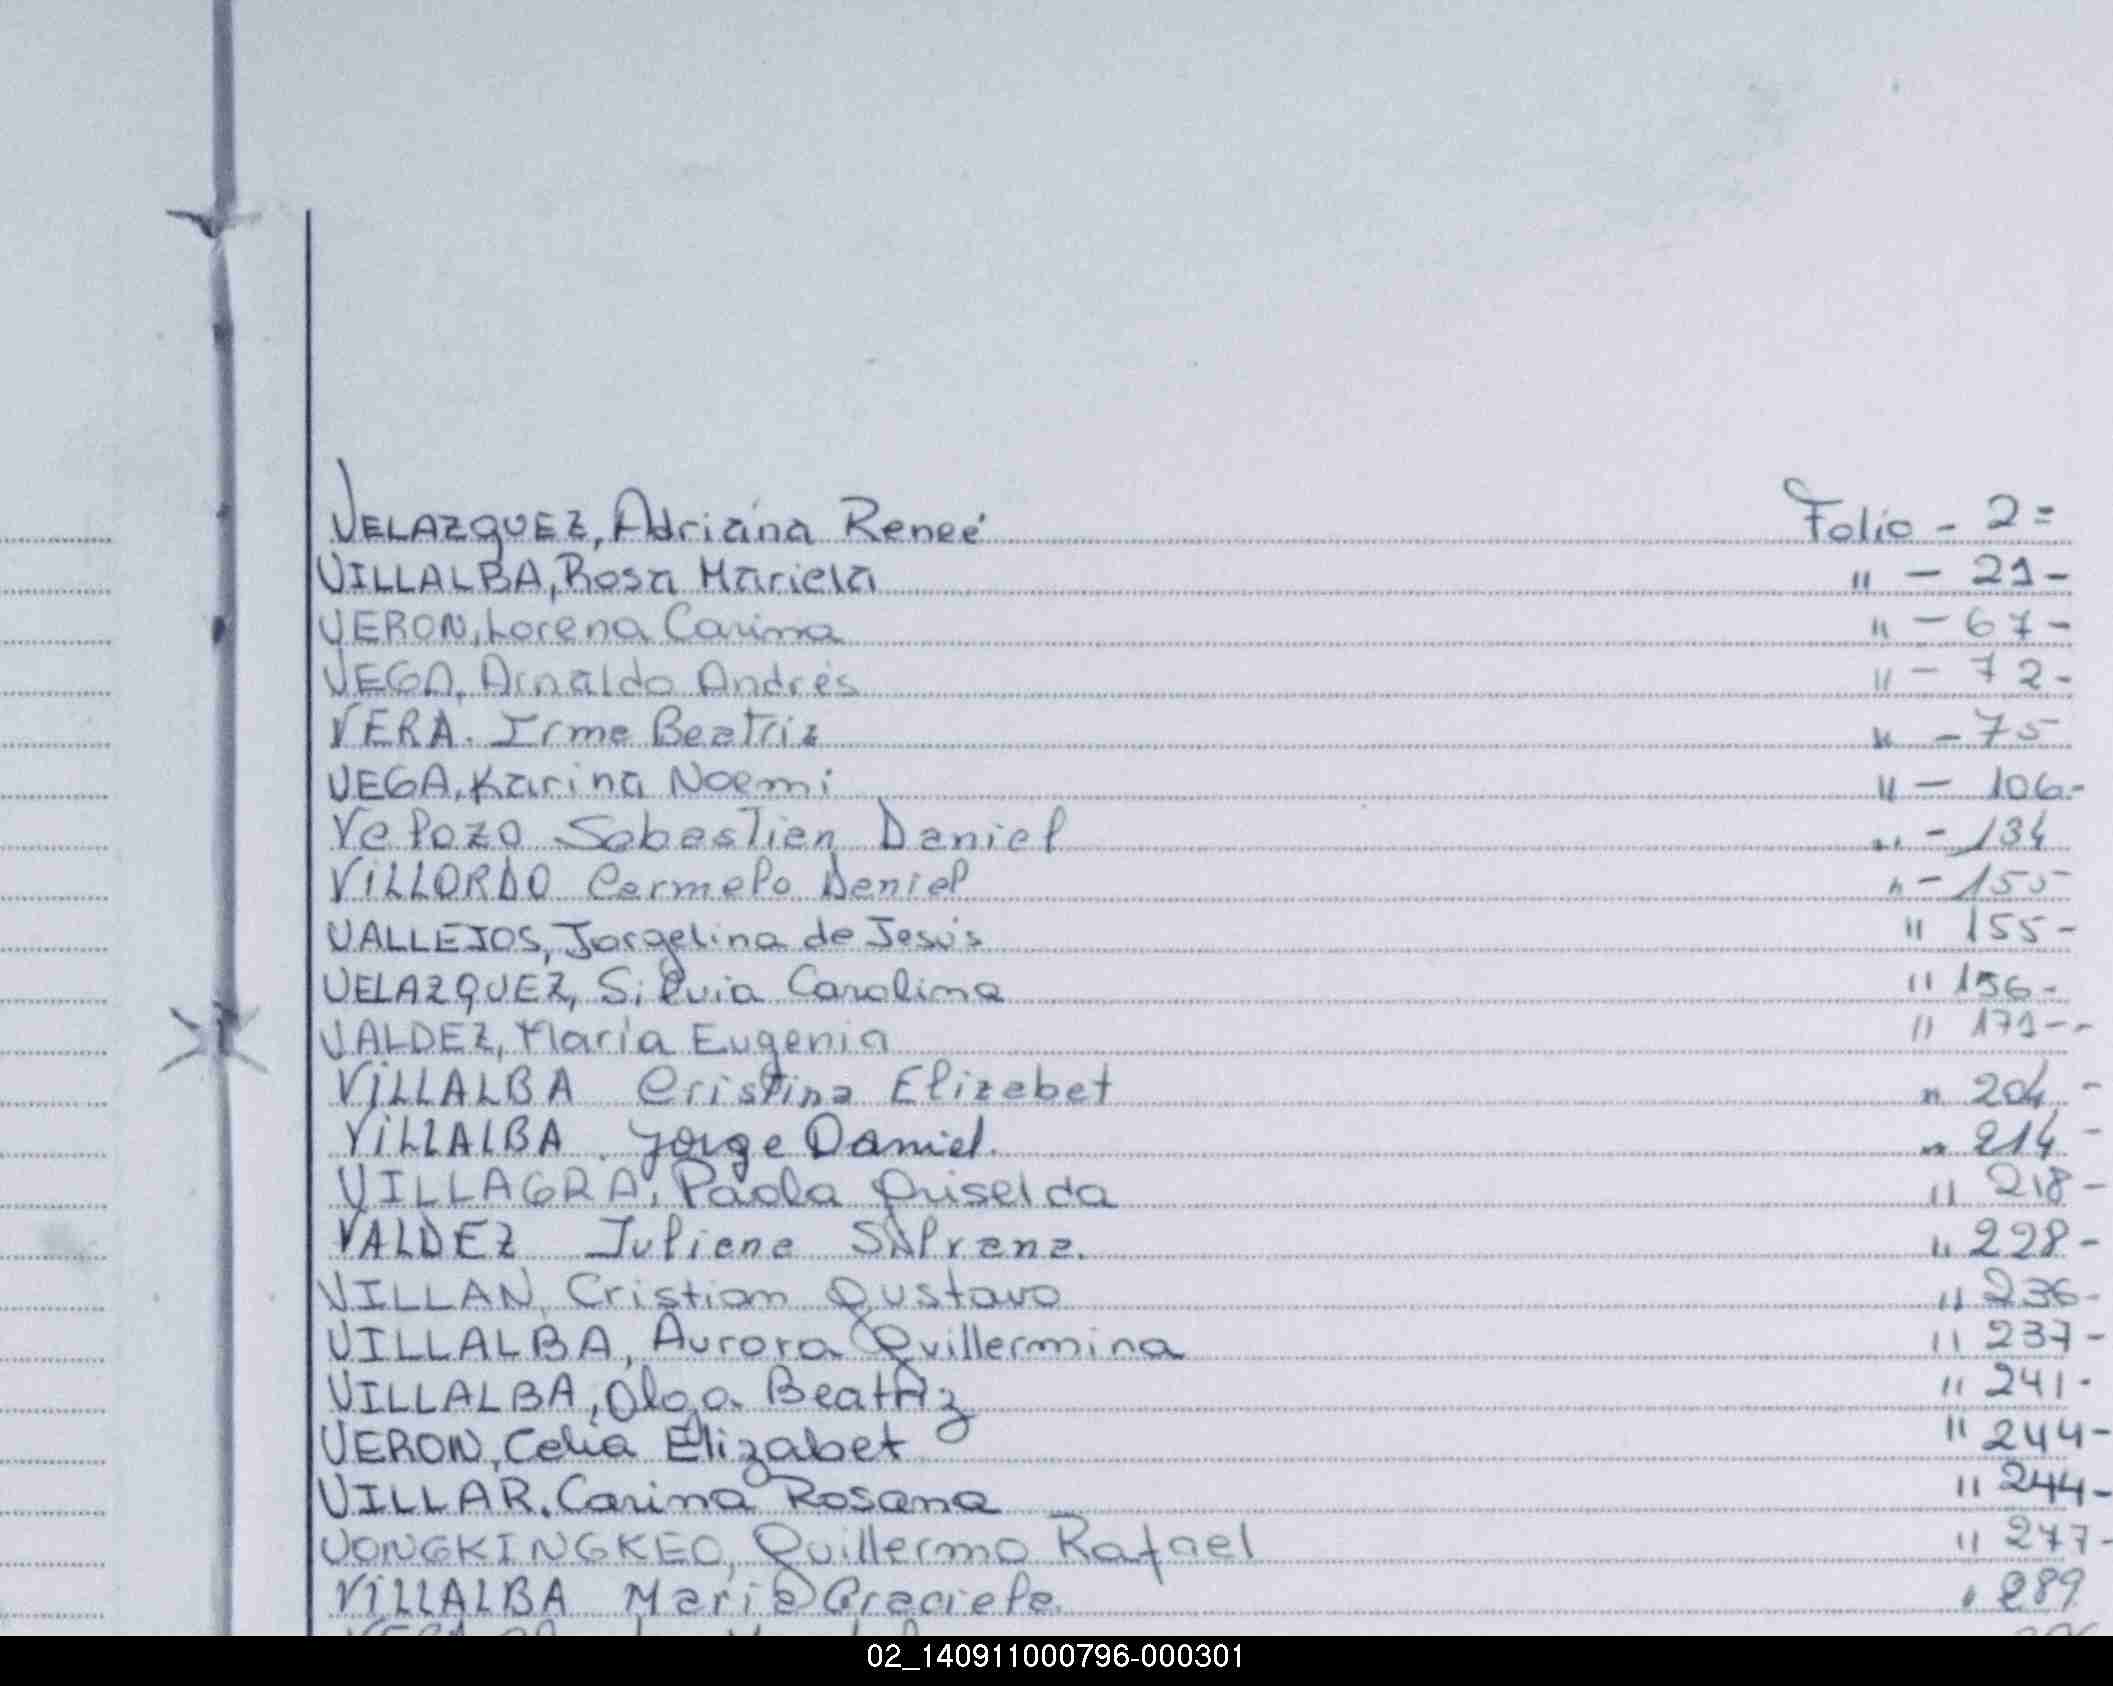 VELAZQUEZ, Adriana Reneé Folio - 2=
VILLALBA, Rosa Mariela " - 21-
VERON, Lorena Carina " - 67-
VEGA, Arnaldo Andrés " - 72-
VERA. Irma Beatriz " - 75
VEGA, Karina Noemi " - 106-
Velozo Sebastian Daniel " - 134
VILLORDO Carmelo Daniel " - 155
VALLEJOS, Jorgelina de Jesús " 155-
VELAZQUEZ, Silvia Carolina " 156-
VALDEZ, María Eugenia " 171--
VILLALBA Cristina Elizabet " 204-
VILLALBA. Jorge Daniel. " 214-
VILLAGRA, Paola Griselda " 218-
VALDEZ Juliana " 228-
VILLAN, Cristian Gustavo " 236-
VILLALBA, Aurora Guillermina " 237-
VILLALBA, Olga Beatriz " 241-
VERON, Celia Elizabet " 244-
VILLAR, Carina Rosana " 244-
VONGKINGKEO, Guillermo Rafael " 277-
VILLALBA Maria Graciela " 289
02_140911000796-000301